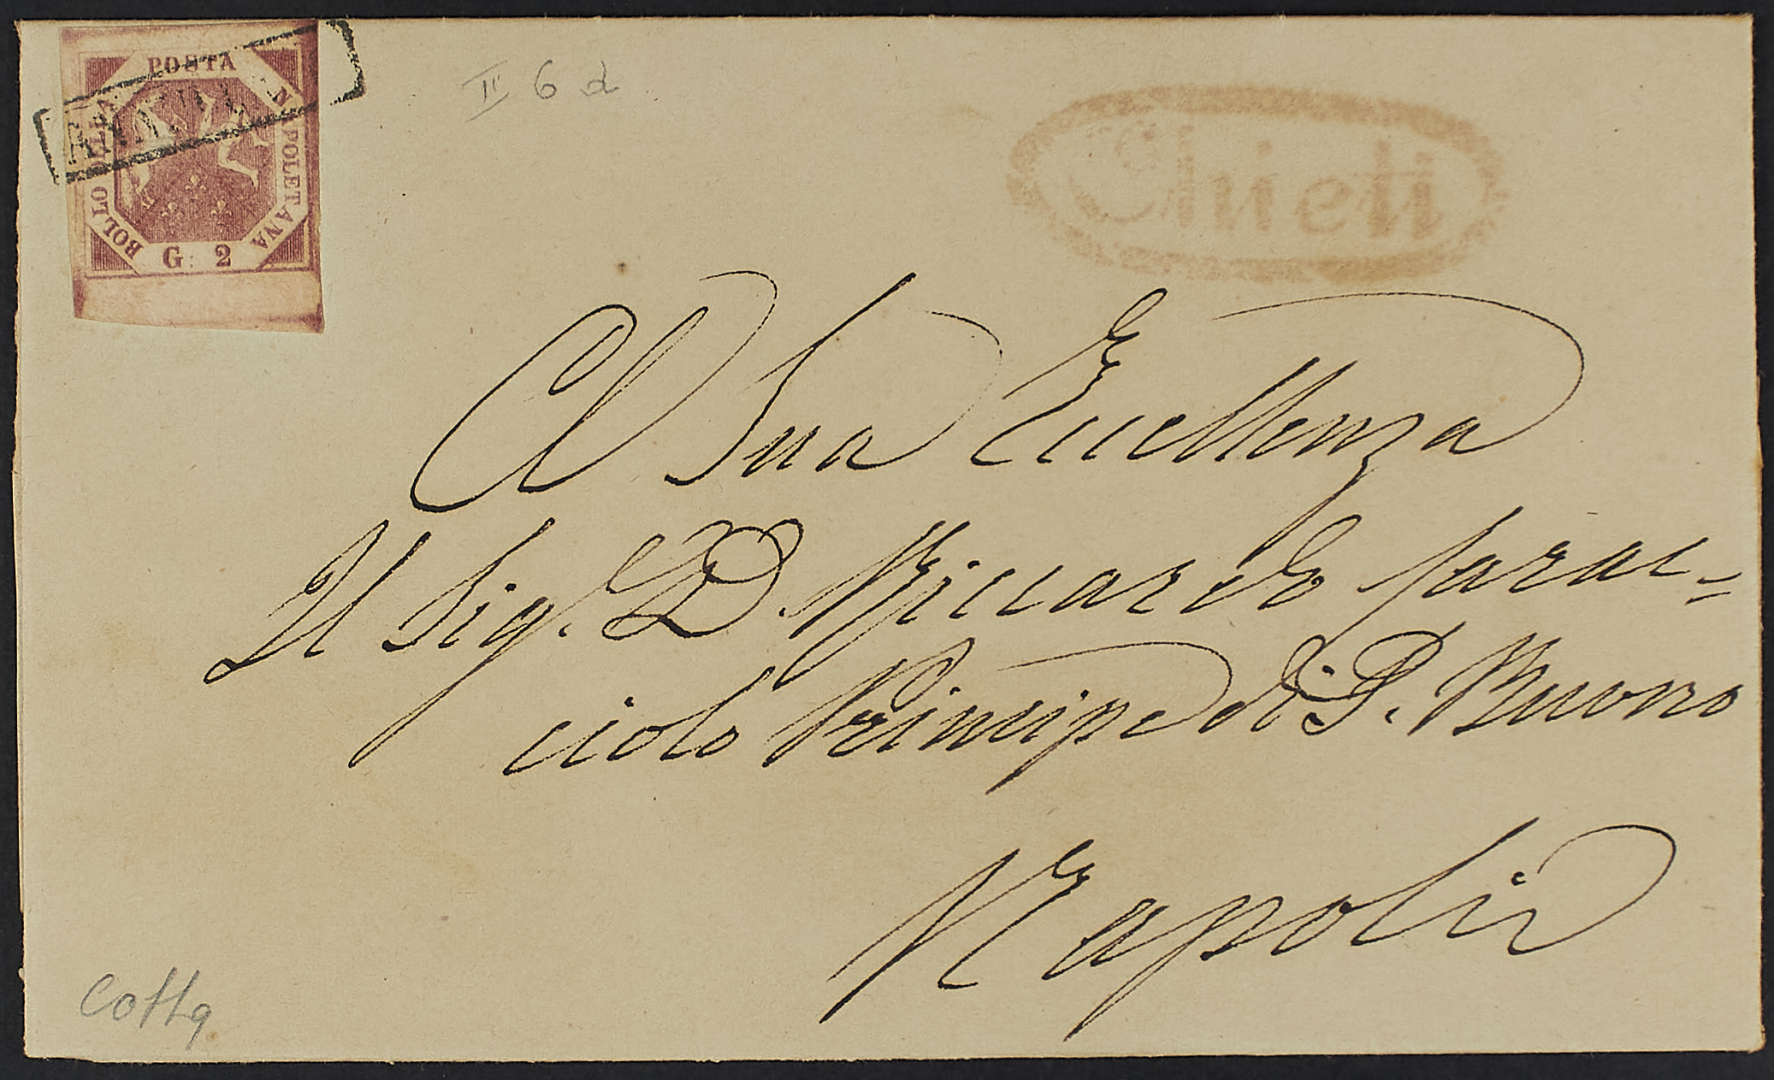 POSTA
NAPOLETANA
BOLLO DELLA
G. 2
ANNULLATO
II 6 d
Chieti
A Sua Eccellenza
Il Sigr. D. Riccardo Carac=
ciolo Principe di S. Buono
Napoli